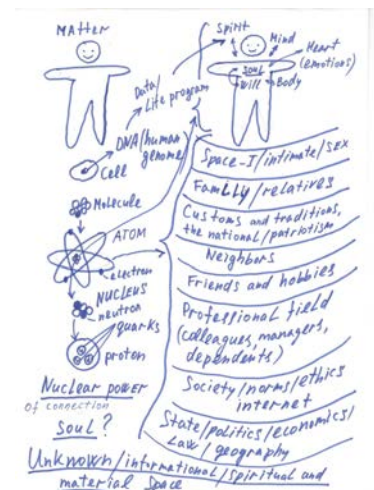 MAtter
Data/
Life program
DNA (human
genome)
Cell
Molecule
ATOM
electron
NUCLEUS
neutron
quarks
proton
Nuclear power
of connection
soul?
Spirit
Mind
Heart
(emotions)
SOUL
will
Body
Space-I/intimate/sex
Family/relatives
Customs and traditions,
the national/patriotism
Neighbors
Friends and hobbies
Professional field
(colleagues, managers,
dependents)
Society/norms/ethics
internet
State/politics/economics/
Law/geography
Unknown/informational/spiritual and
material space